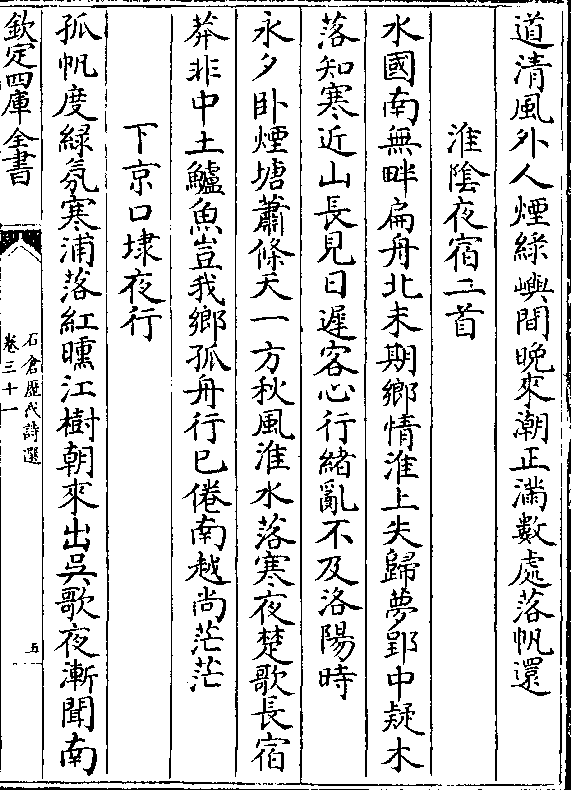 道清風外人煙綠嶼間晚來潮正滿數處落帆還
淮陰夜宿二首
水國南無畔扁舟北未期鄉情淮上失歸夢郢中疑木
落知寒近山長見日遲客心行緒亂不及洛陽時
永夕卧煙塘蕭條天一方秋風淮水落寒夜楚歌長宿
莽非中土鱸魚豈我鄉孤舟行已倦南越尚茫茫
下京口埭夜行
孤帆度綠氛寒浦落紅曛江樹朝來出吳歌夜漸聞南
欽定四庫全書
石倉歷代詩選
卷三十一
五